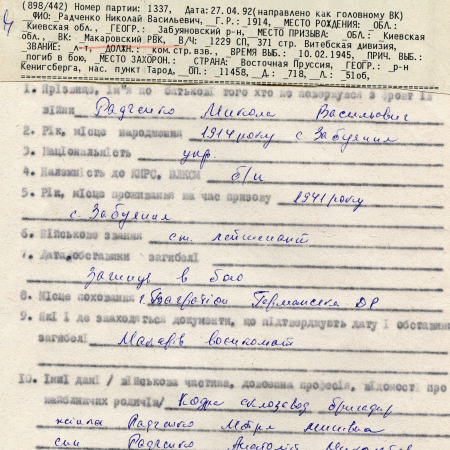 (898/442) Номер партии: 1337, Дата:27.04.92(направлено как головному ВК)
ФИО: Радченко Николай Васильевич, Г.Р.: 1914, МЕСТО РОЖДЕНИЯ: ОБЛ.:
Киевская обл., ГЕОГР.: Забуяновский р-н, МЕСТО ПРИЗЫВА: ОБЛ.: Киевская
обл., ВК: Макаровский РВК, В/Ч: 1229 СП, 371 стр. Витебская дивизия,
ЗВАНИЕ: л-т, ДОЛЖН.: ком.стр.взв., ВРЕМЯ ВЫБ.: 10.02.1945, ПРИЧ. ВЫБ.:
погиб в бою, МЕСТО ЗАХОРОН.: СТРАНА: Восточная Пруссия, ГЕОГР.: р-н
Кенигсберга, нас. пункт Тарод, ОП.: 11458, Д.: 718, Л.: 51об,
1. Прізвище, ім'я по батькові того хто не повернувся з фронтів
війни Радченко Микола Васильович
2. Рік, місце народження 1914 року с Забуяння
3. Національність укр.
4. Належність до КПРС, ВЛКСМ б/п
5. Рік, місце проживання на час призову 1941 року
с. Забуяння
6. Військове звання ст. лейтенант
7. Дата, обставини загибелі
Загинув в бою
8. Місце поховання г. Багратіон Германська ДР
9. Які і де знаходяться документи, що підтверджують дату і обставини
загибелі Макарів воєнкомат
10. Інші дані / військова частина, довоєнна професія, відомості про
найближчих родичів/ бригадир
жінка Радченко
син Радченко Анатолій